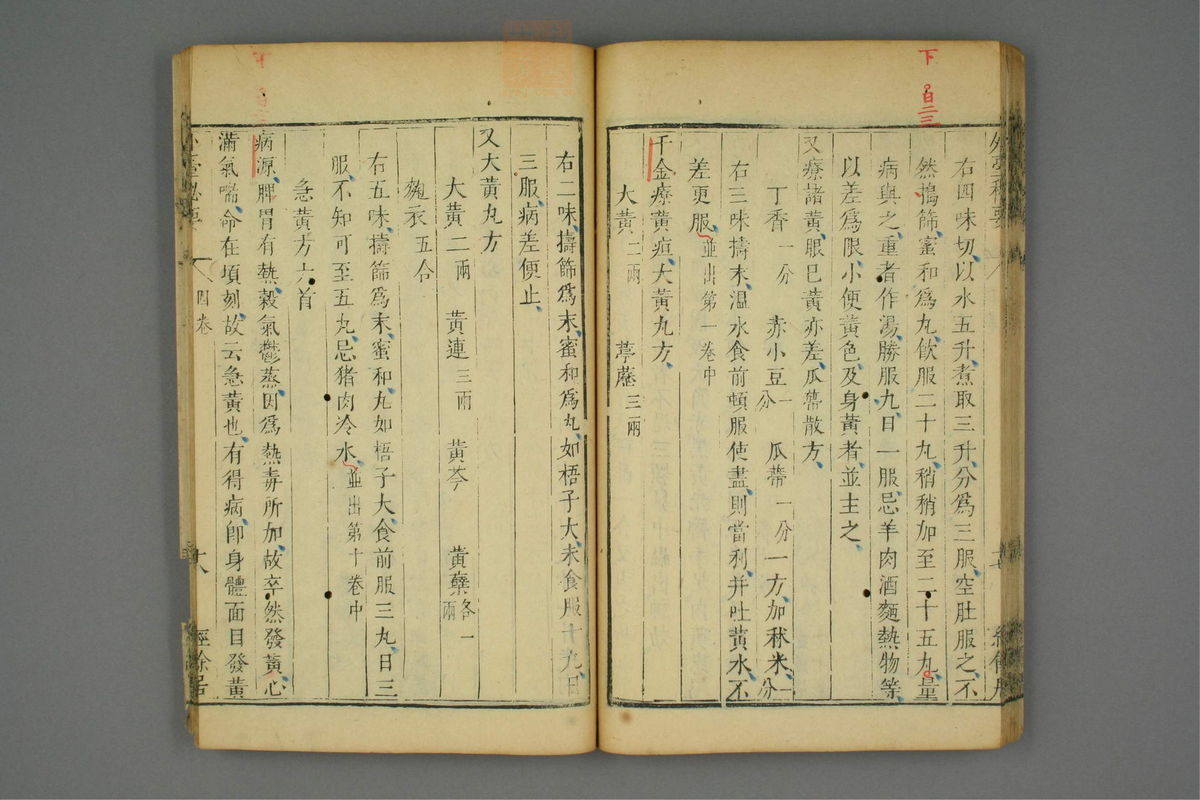 下 白二三
外臺秘要
右四味切以水五升煮取三升分爲三服空肚服之不
然搗篩蜜和爲丸飲服二十丸稍稍加至二十五丸量
病與之重者作湯勝服丸日一服忌羊肉酒麵熱物等
以差爲限小便黃色及身黃者並主之
又療諸黃眼巳黃亦差瓜蔕散方
丁香一分 赤小豆一分 瓜蔕一分 一方加秫米一分
右三味擣末溫水食前頓服使盡則當利并吐黃水不
差更服並出第一卷中
千金療黃疸大黃丸方
大黃二兩 葶藶三兩
右二味擣篩爲末蜜和爲丸如梧子大未食服十丸日
三服病差便止
又大黃丸方
大黃二兩 黃連三兩 黃芩 黃蘗各一兩
麴衣五合
右五味擣篩爲末蜜和丸如梧子大食前服三丸日三
服不知可至五丸忌猪肉冷水並出第十卷中
急黃方六首
病源脾胃有熱穀氣鬱蒸因爲熱毒所加故卒然發黃心
滿氣喘命在頃刻故云急黃也有得病卽身體面目發黃
外臺秘要 四卷 十八 經餘居